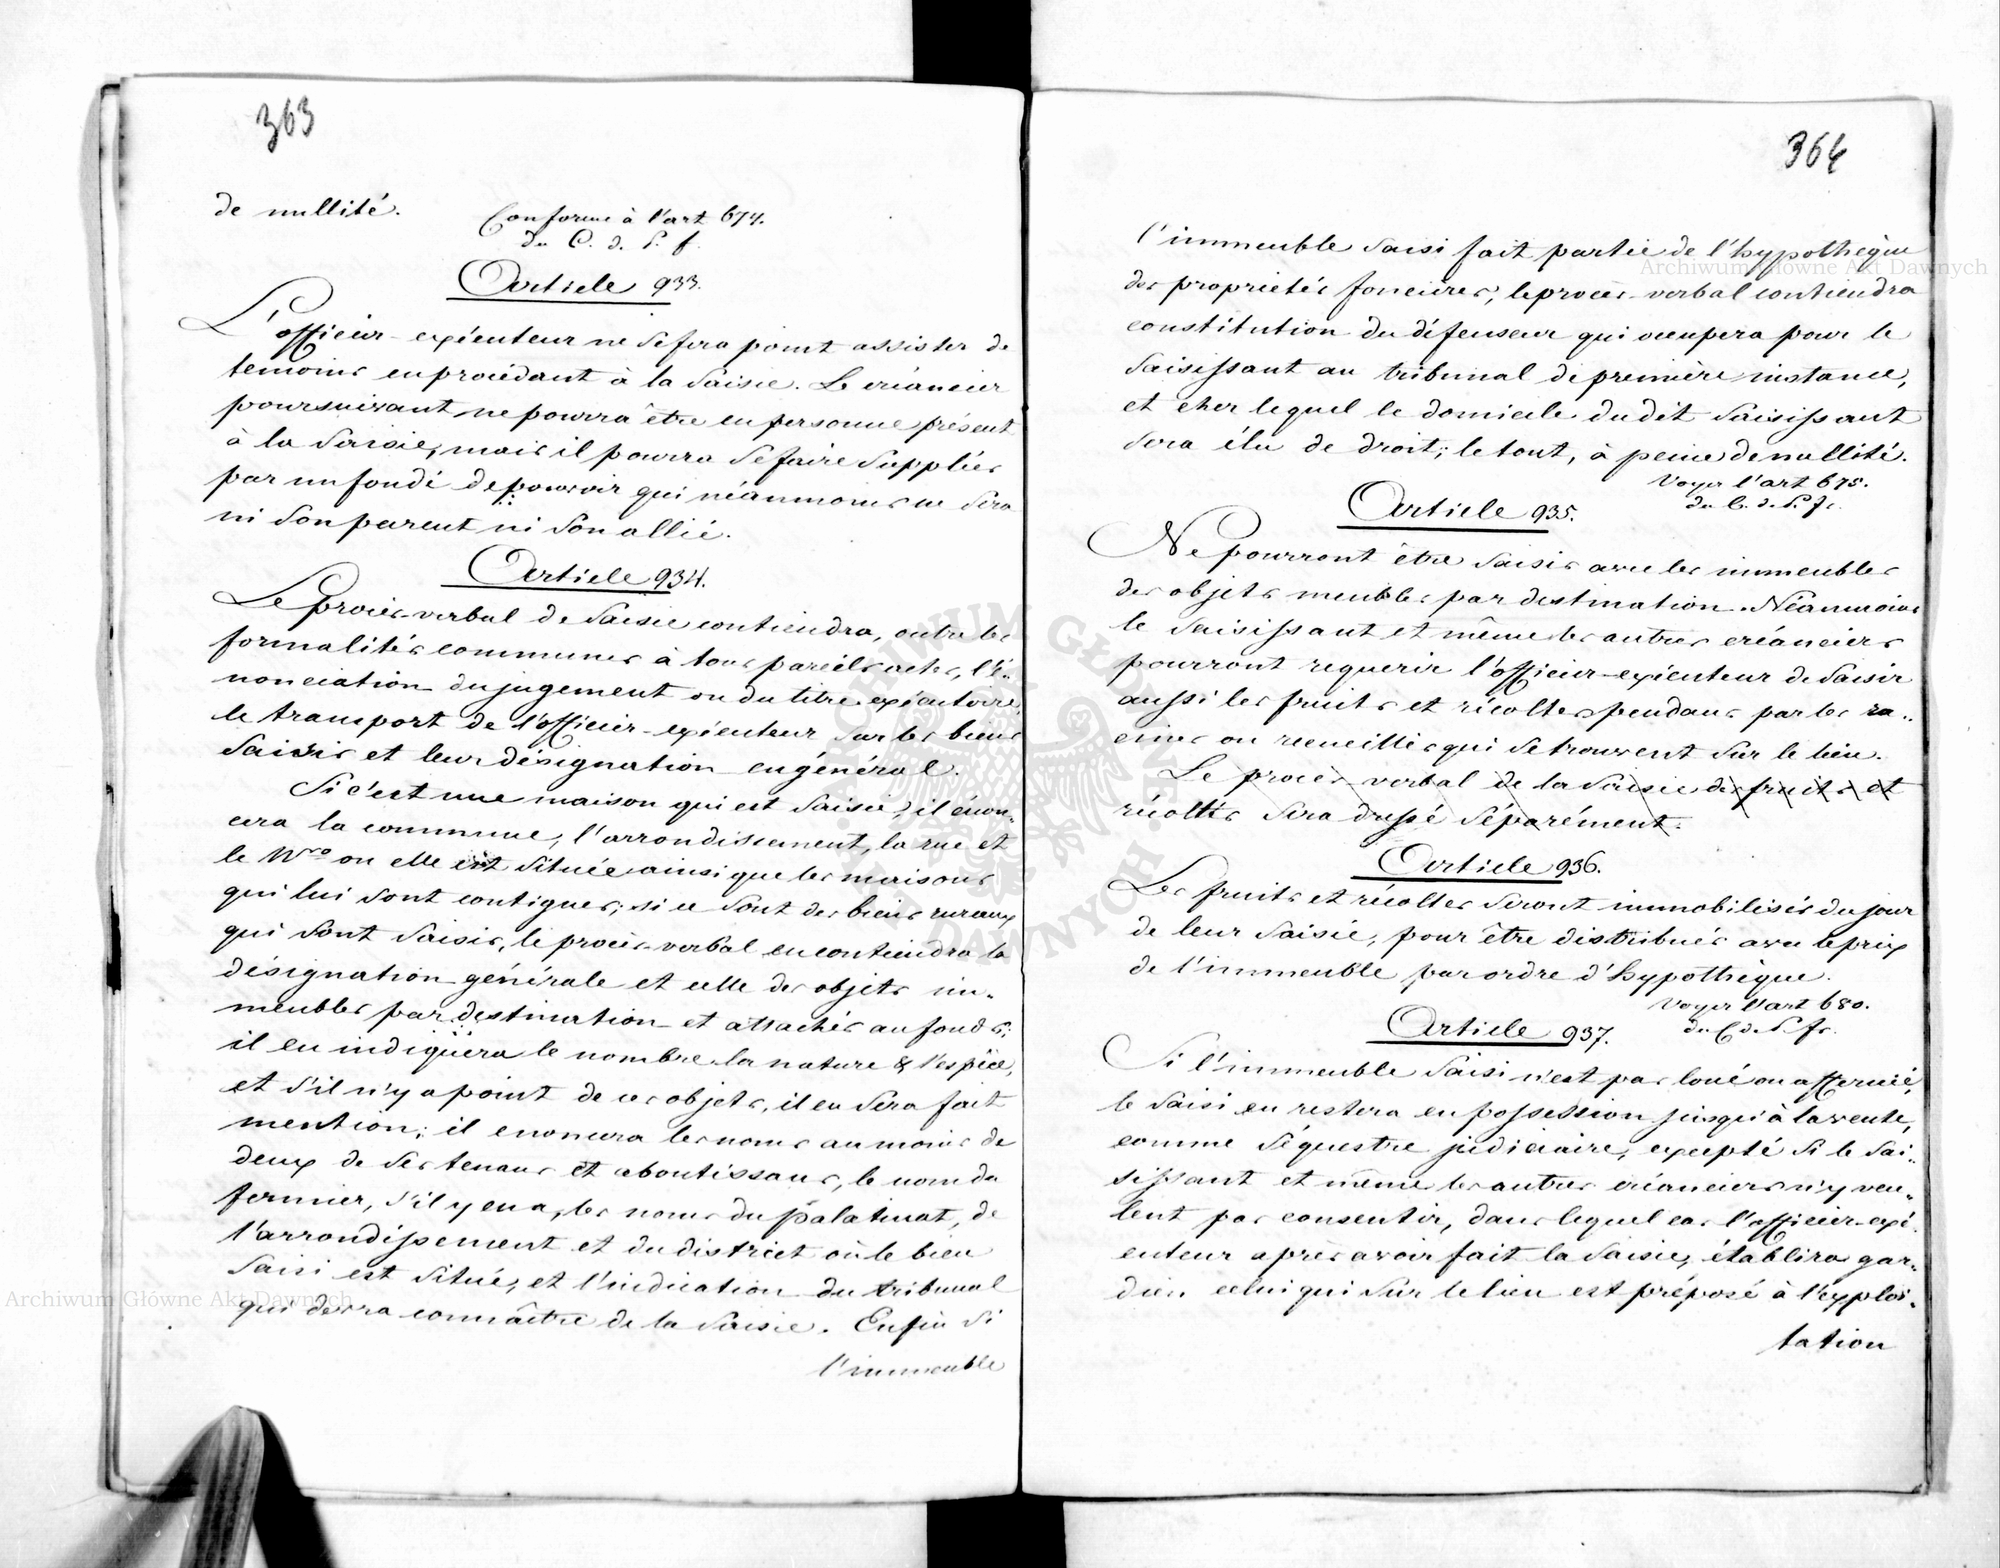 363
de nullité.
Conforme à l'art 674.
du C. d. P. f.
Article 933.
L'officier-exécuteur ne se fera point assister de
temoins en procédant à la saisie. Le créancier
poursuivant ne pourra être en personne présent
à la saisie, mais il pourra se faire suppléer
par un fondé de pouvoir qui néanmoins ne sera
ni son parent ni son allié.
Article 934.
Le procès-verbal de saisie contiendra, outre les
formalités communes à tous pareils actes, l'é-
nonciation du jugement ou du titre exécutoire,
le transport de l'officier-exécuteur sur les biens
saisis et leur désignation en général.
Si c'est une maison qui est saisie, il énon-
cera la commune, l'arrondissement, la rue et
le Nro ou elle est située ainsi que les maisons
qui lui sont contigues; si ce sont des biens ruraux
qui sont saisis, le procès-verbal en contiendra la
désignation générale et celle des objets im-
meubles par destination et attachés au fonds;
il en indiquera le nombre la nature & l'espèce,
et s'il n'y a point de ces objets, il en sera fait
mention; il enoncera les noms au moins de
deux de ses tenans et aboutissans, le nom du
fermier, s'il y en a, les noms du palatinat, de
l'arrondissement et du district où le bien
saisi est situé, et l'indication du tribunal
qui devra connaître de la saisie. Enfin si
l'immeuble
364
l'immeuble saisi fait partie de l'hypothèque
des propriétés foncières, le procès-verbal contiendra
constitution du défenseur qui occupera pour le
saisissant au tribunal de première instance,
et chez lequel le domicile du dit saisissant
sera élu de droit; le tout, à peine de nullité.
Voyez l'art 675.
du C. d. P. fr.
Article 935.
Ne pourront être saisis avec les immeubles
des objets meubles par destination. Néanmoins
le saisissant et même les autres créanciers
pourront requerir l'officier-exécuteur de saisir
aussi les fruits et récoltes pendans par les ra-
cines ou recueillis qui se trouvent sur le lieu.
Le procès-verbal de la saisie des fruits et
récoltes sera dressé séparément.
Article 936.
Les fruits et récoltes seront immobilisés du jour
de leur saisie, pour être distribués avec le prix
de l'immeuble par ordre d'hypothèque.
Voyez l'art 680.
du C. d. P. fr.
Article 937.
Si l'immeuble saisi n'est pas loué ou affermé,
le saisi en restera en possession jusqu'à la vente,
comme séquestre judiciaire, excepté si le sai-
sissant et même les autres créanciers n'y veu-
lent pas consentir, dans lequel cas l'officier-exé-
cuteur après avoir fait la saisie, établira gar-
dien celui qui sur le lieu est préposé à l'exploi-
tation
Archiwum Główne Akt Dawnych
Archiwum Główne Akt Dawnych
ARCHIWUM GŁÓWNE AKT DAWNYCH